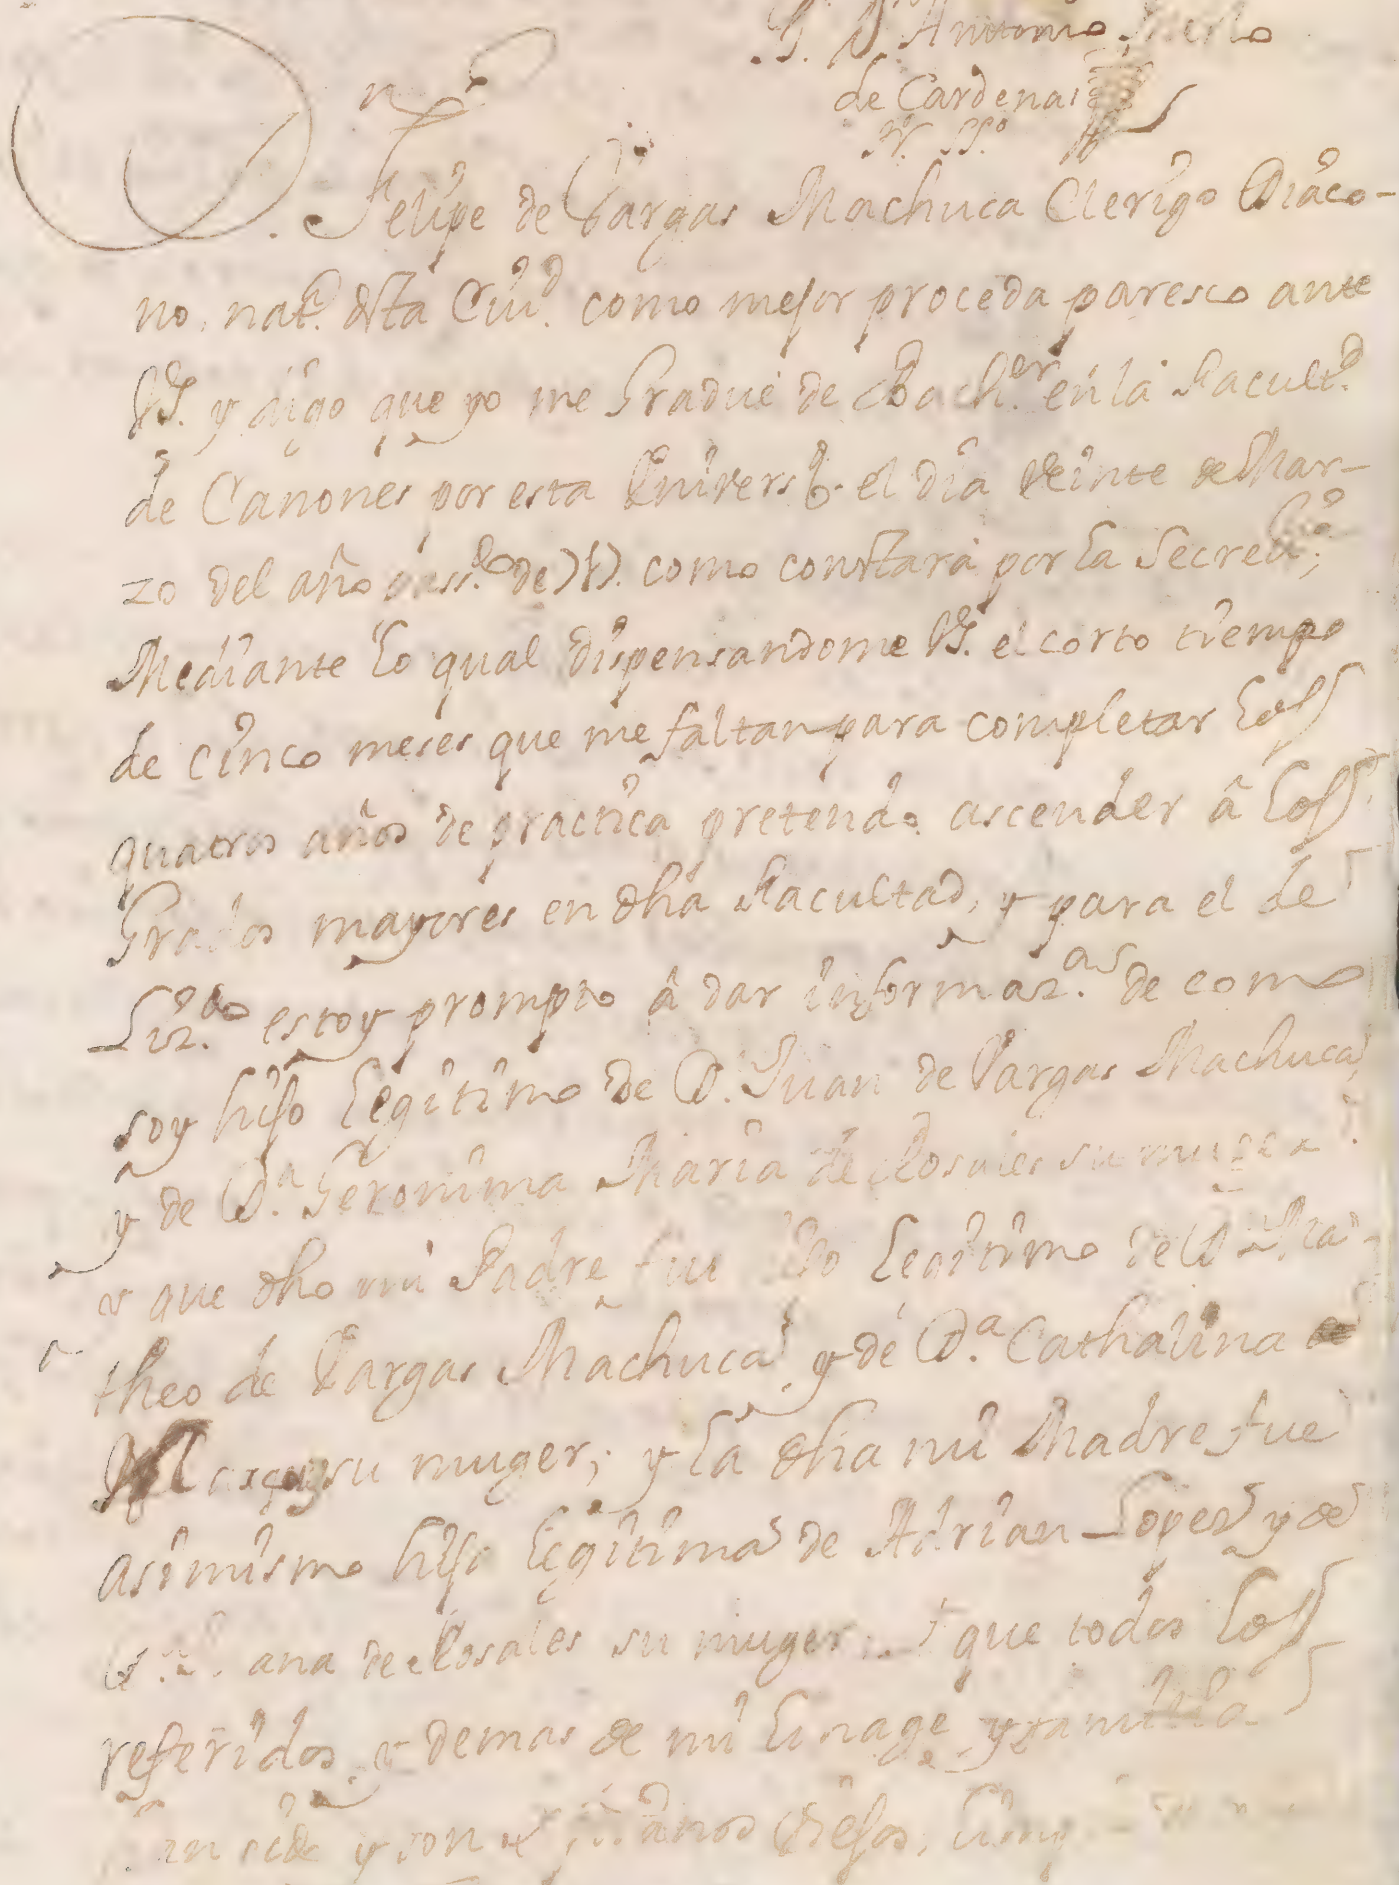 Antonio Merlo
de Cardenas
Felipe de Vargas Machuca Clerigo Diaco-
no, nat.l dsta Ciud. como mejor proceda paresco ante
VS. y digo que yo me Gradué de Bach.er en la Facult.d
de Canones por esta Univers.d el dia Veinte de Mar-
zo del año pass.do de como constará por la Secret.a;
Mediante lo qual dispensandome VS. el corto tiempo
de cinco meses que me faltan para completar los
quatro años de practica pretendo ascender â los
Grados mayores en dha Facultad, y para el de
Liz.do estoy prompto â dar informaz.as de como
soy hijo legitimo de D. Juan de Vargas Machuca,
y de D.a Geronima Maria de Rosales su muger
y que dho mi Padre fue hijo legitimo de D. Ma-
theo de Vargas Machuca y de D.a Cathalina de
su muger; y la dha mi Madre fue
asimismo hija legitima de Adrian Lopez y de
ana de Rosales su muger; Y que todos los
referidos, y demas de mi linage y familia
han sido y son xptianos viejos, limp